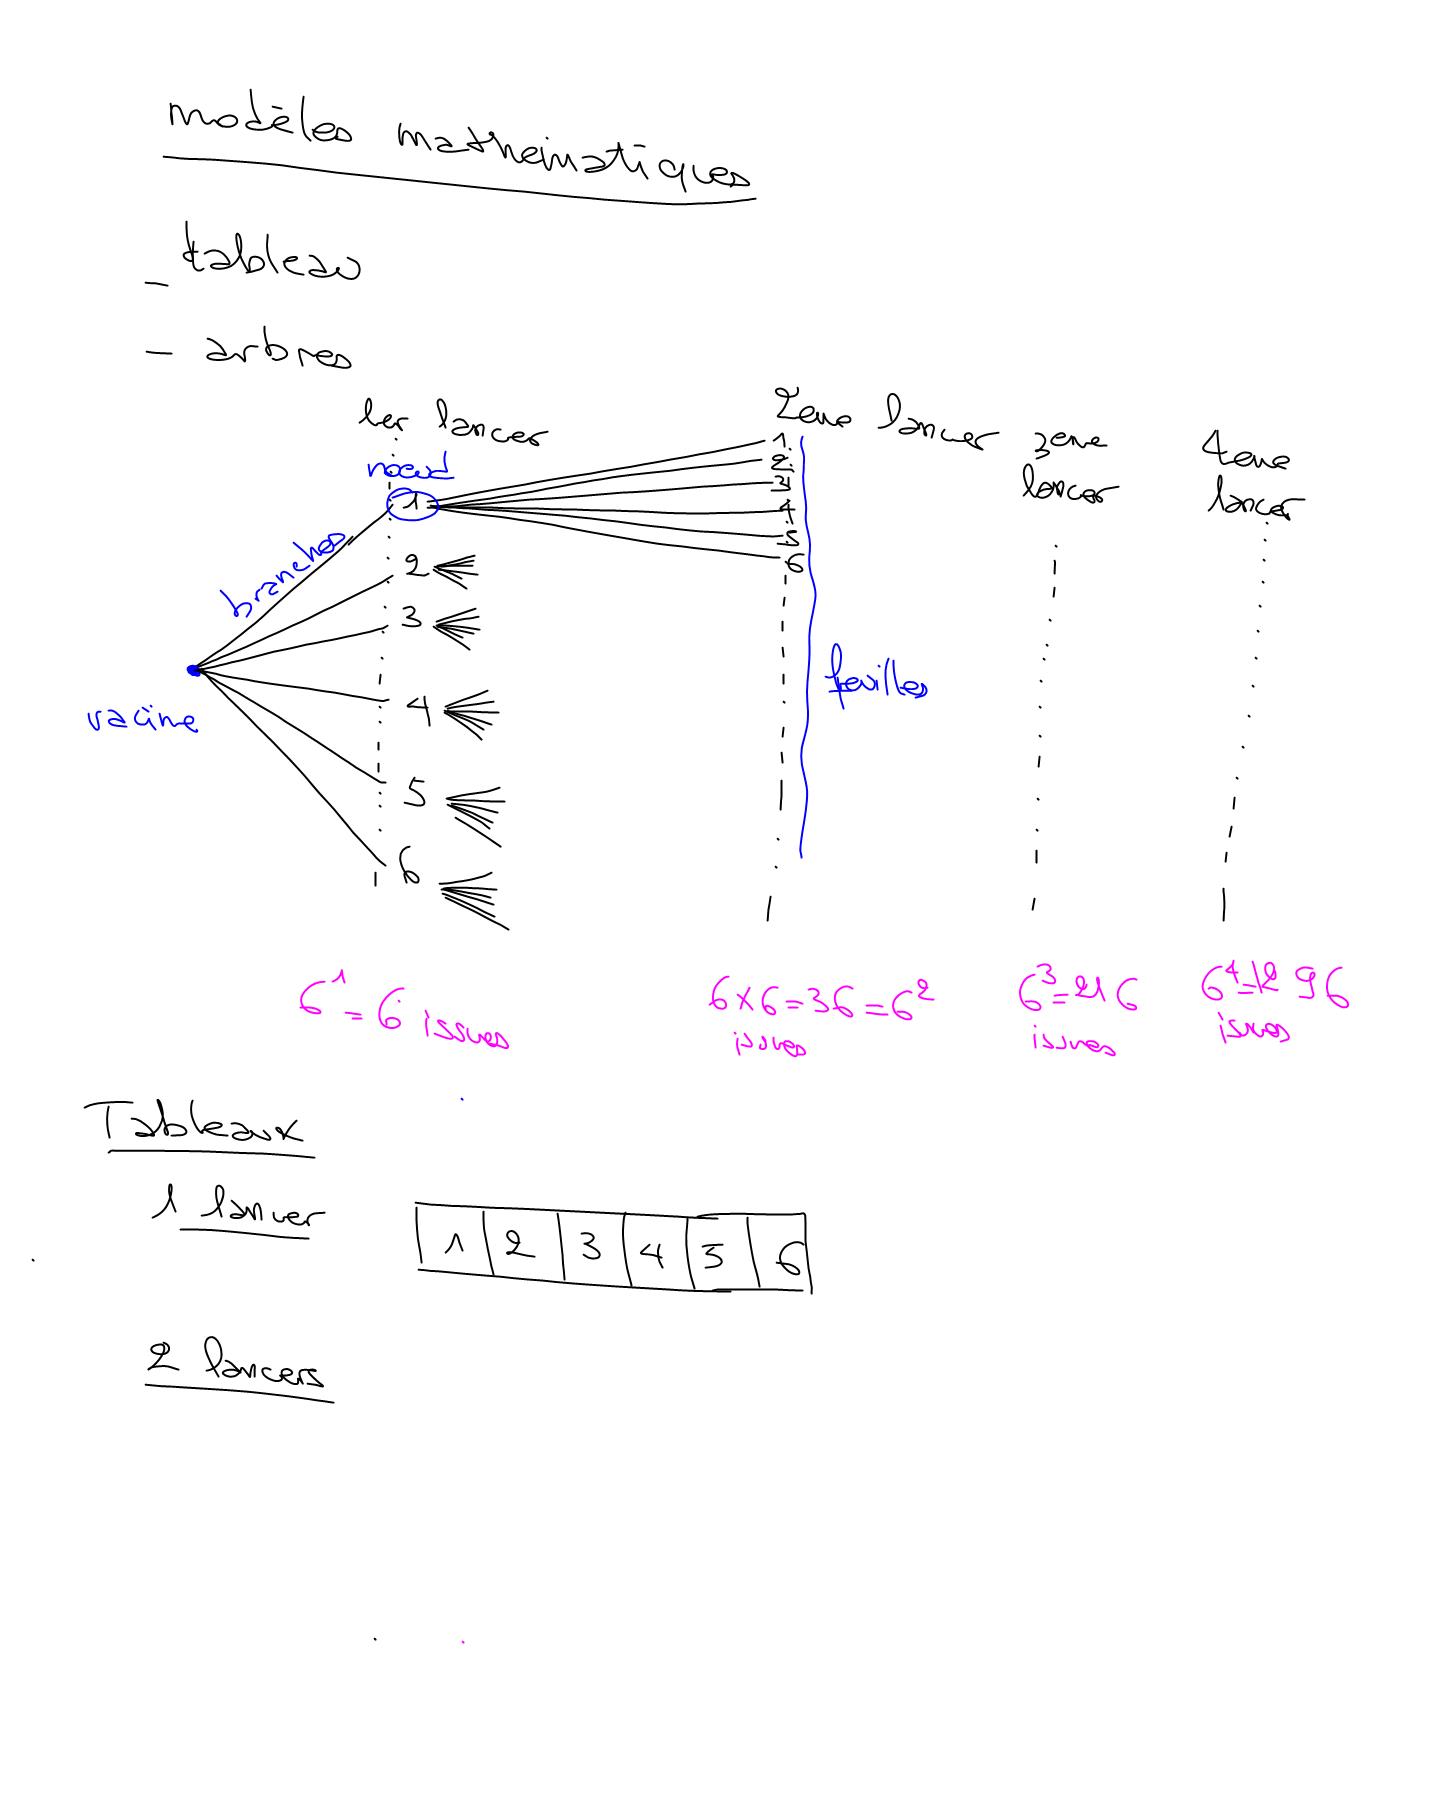 modèles mathématiques
- tableau
- arbres
1er lancer
2eme lancer
3eme
lancer
4eme
lancer
noeud
1
1
2
3
4
5
6
branches
2
3
racine
4
feuilles
5
6
6¹ = 6 issues
6 x 6 = 36 = 6²
issues
6³ = 216
issues
6⁴ = 1296
issues
Tableaux
1 lancer
1 2 3 4 5 6
2 lancers